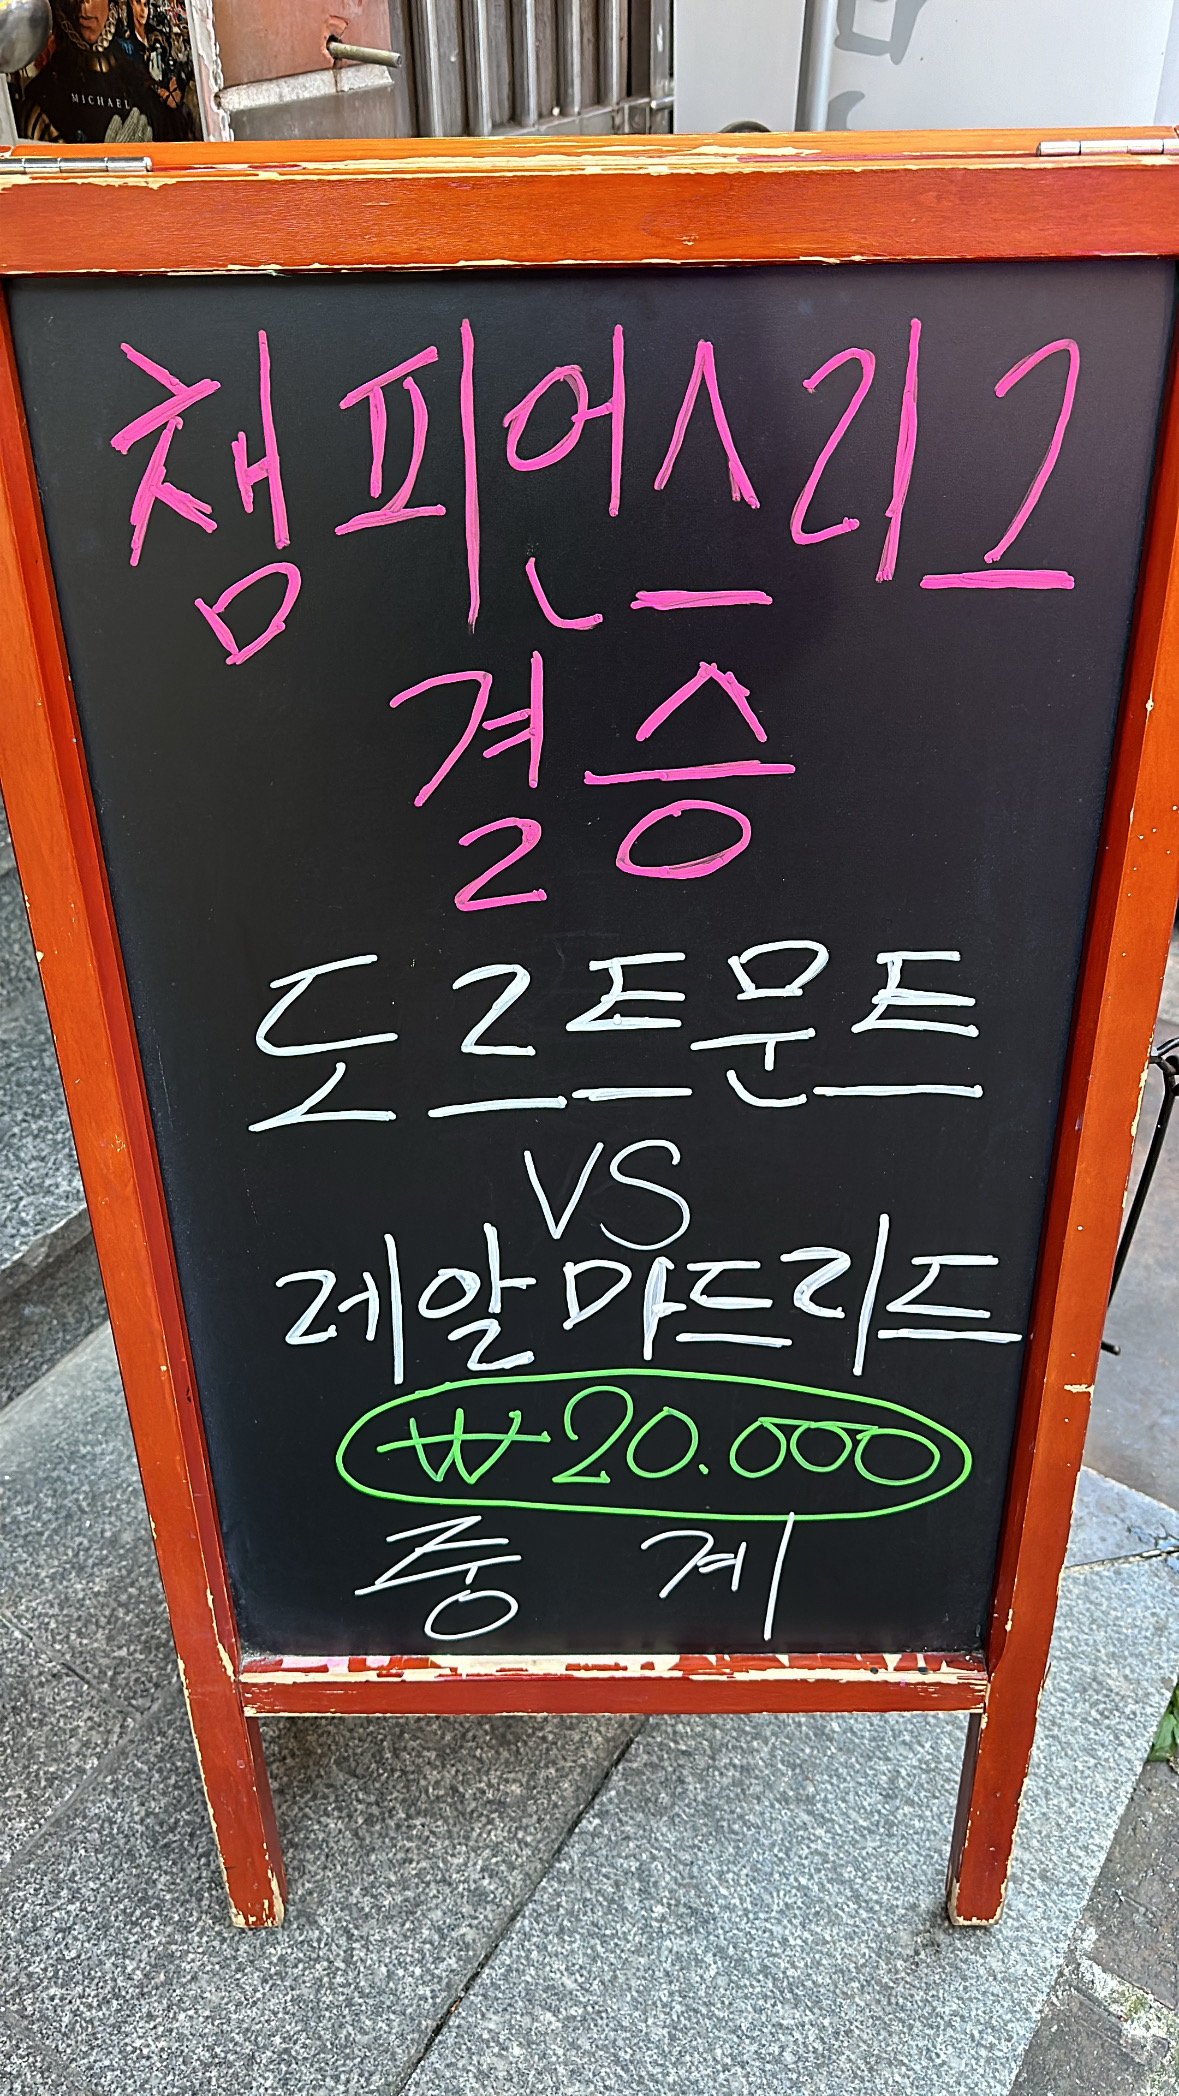 MICHAEL
챔피언스리그
결승
도르트문트
VS
레알마드리드
₩20.000
중계